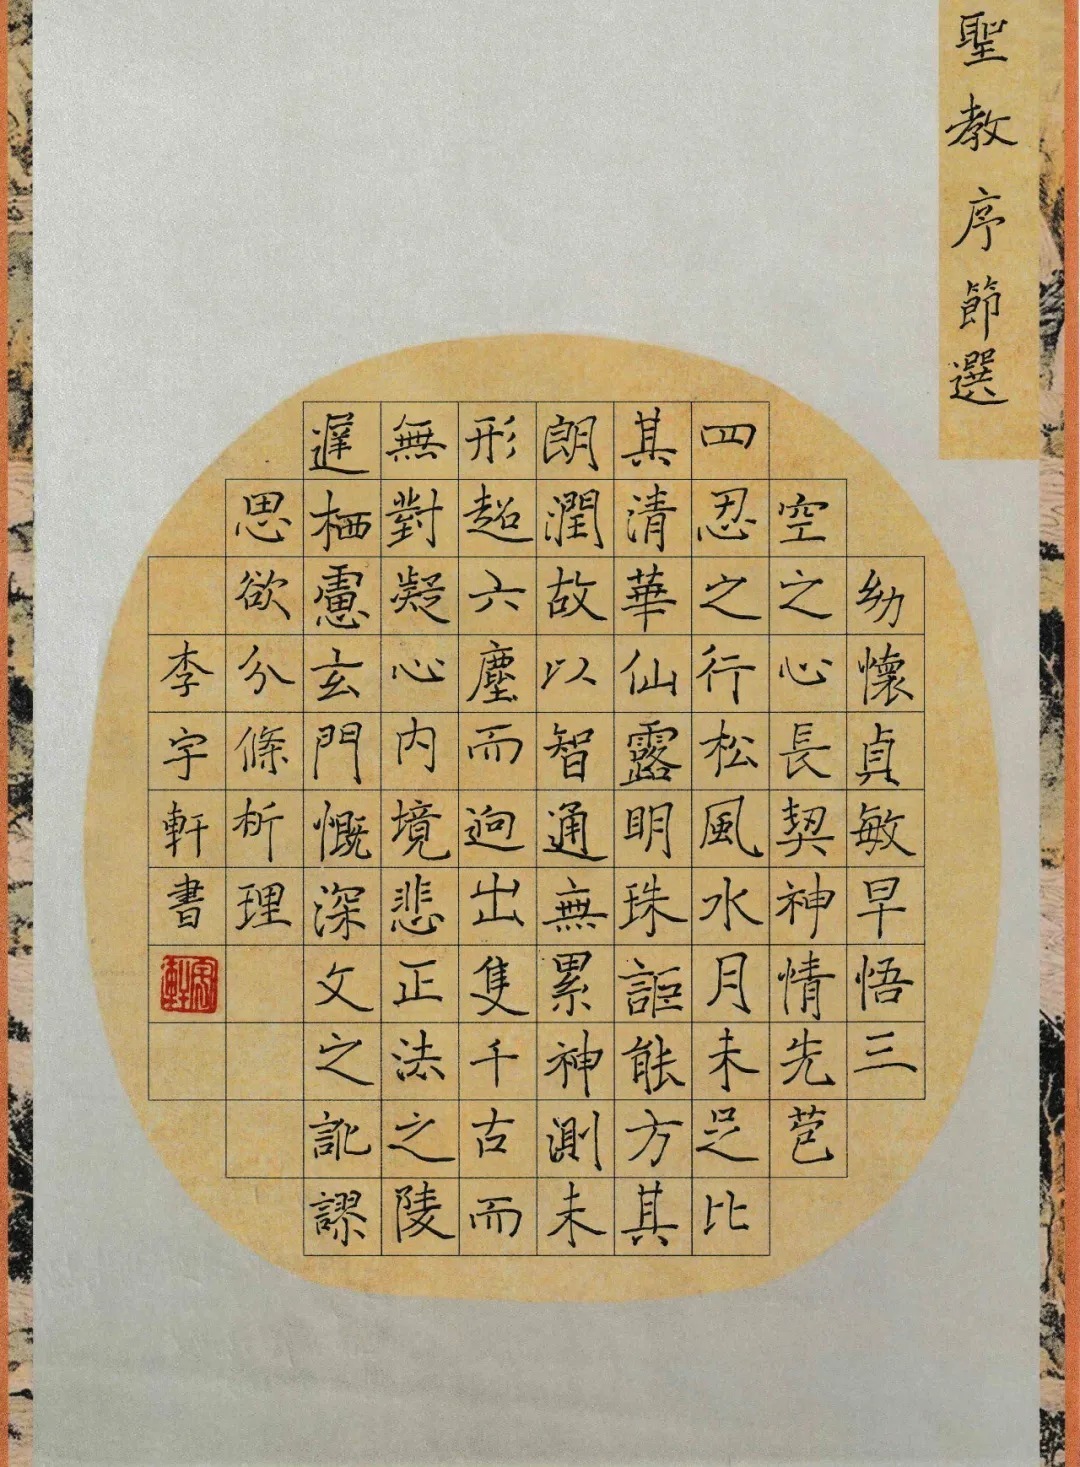 聖教序節選
幼懷貞敏早悟三
空之心長契神情先苞
四忍之行松風水月未足比
其清華仙露明珠詎能方其
朗潤故以智通無累神測未
形超六塵而迥出隻千古而
無對凝心內境悲正法之陵
遲栖慮玄門慨深文之訛謬
思欲分條析理
李宇軒書
宇軒